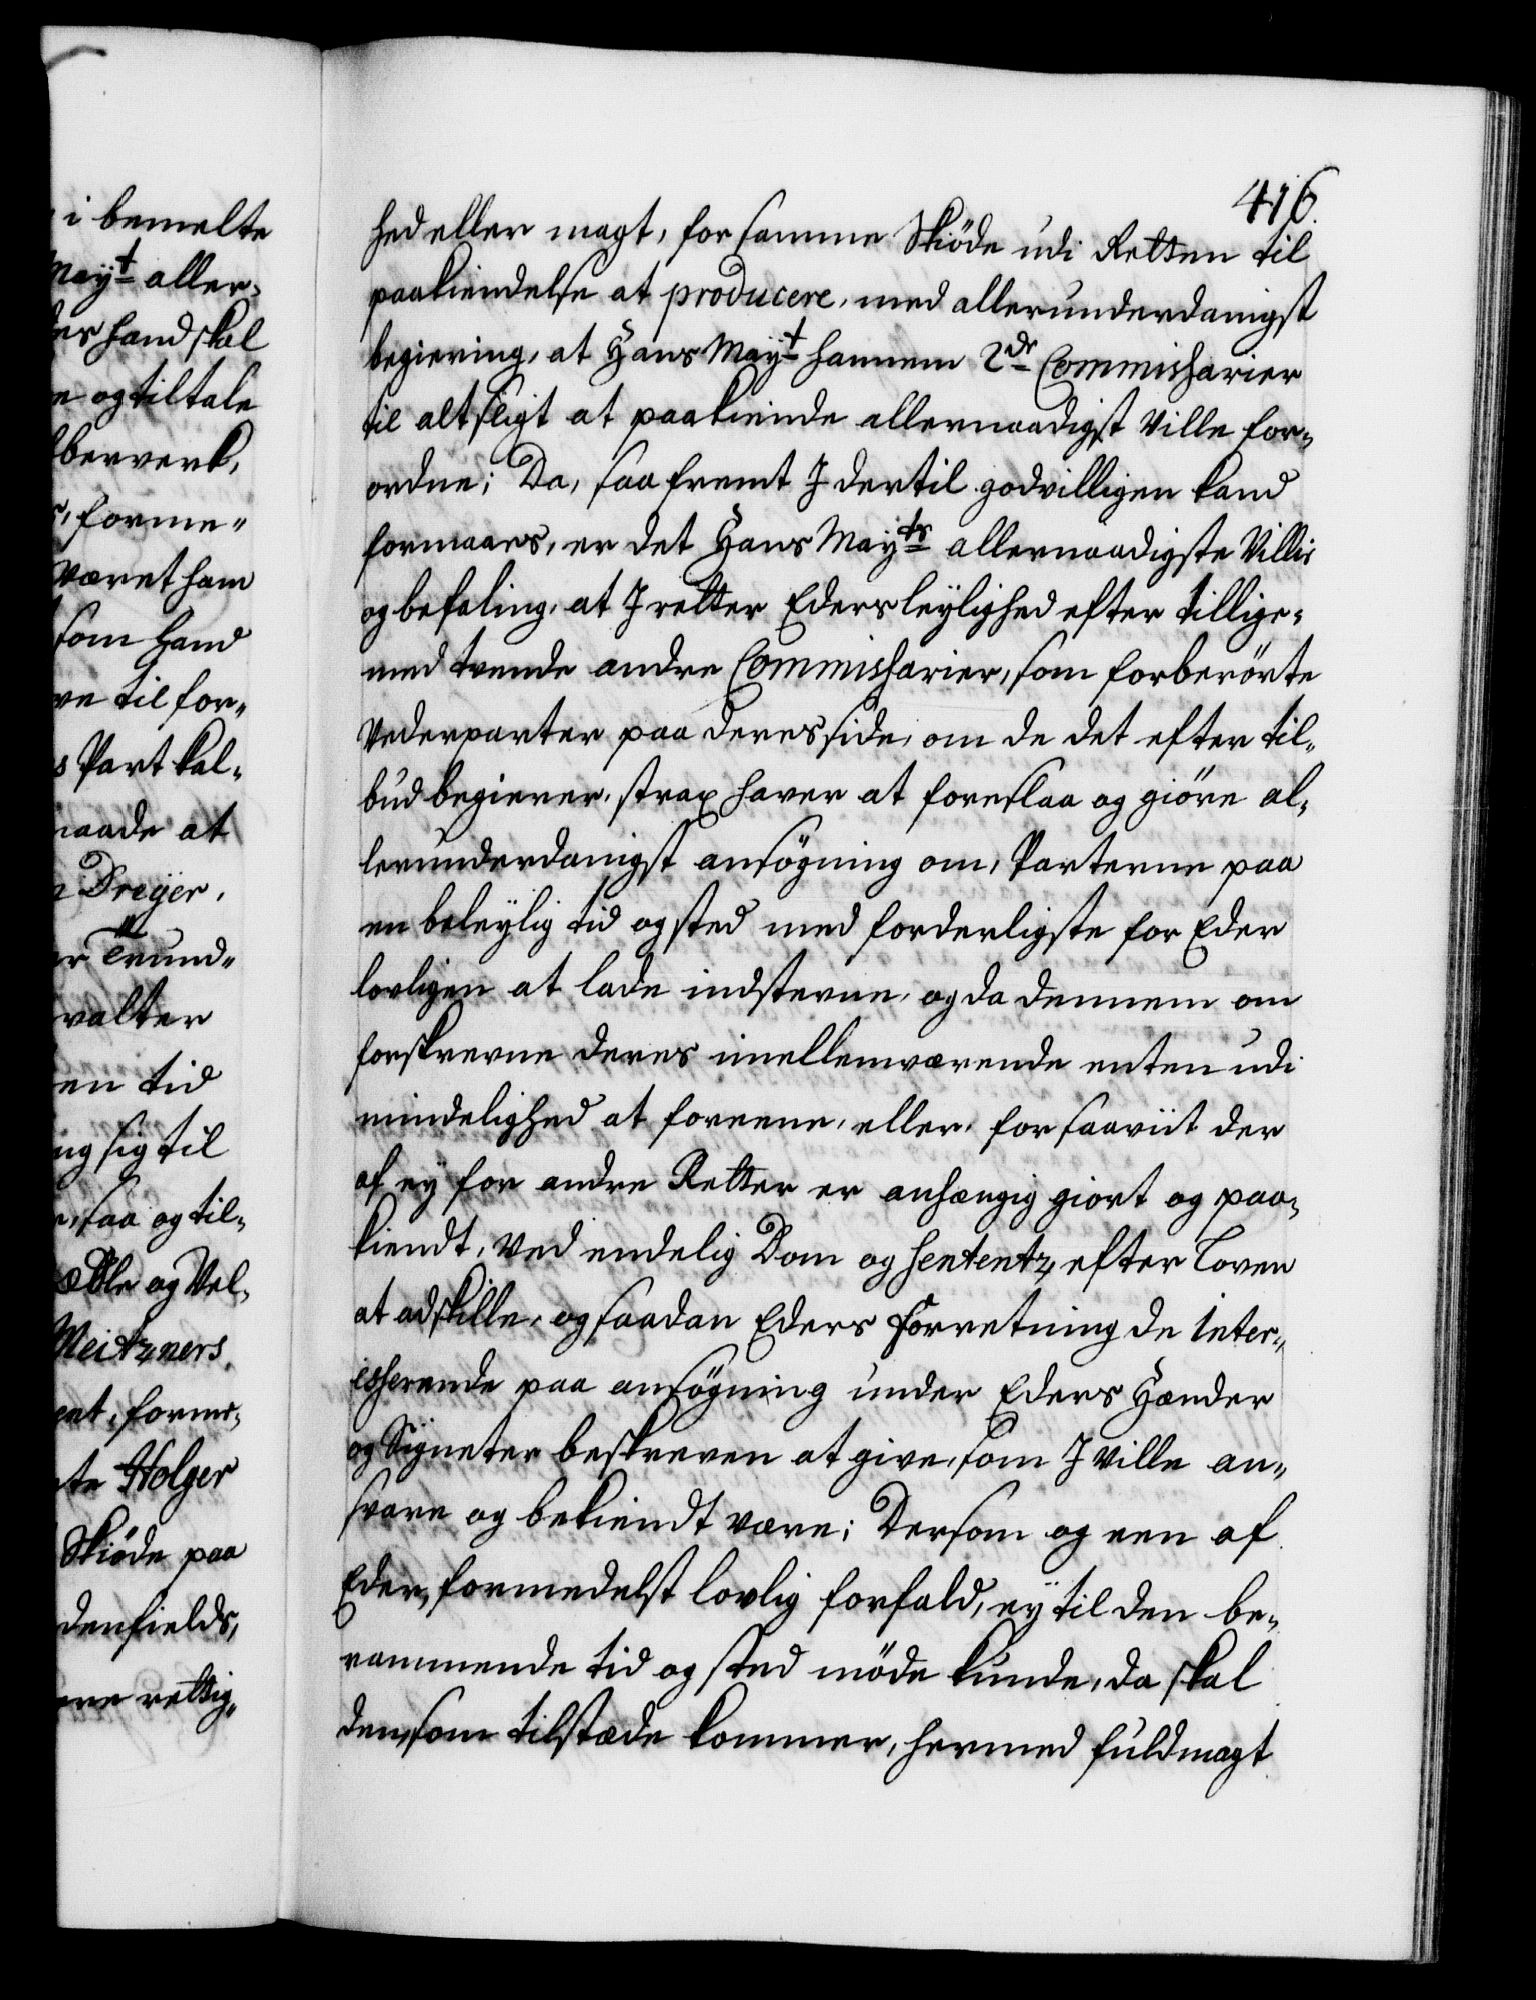 i bemelte
Mayt aller-
hand skal
og tiltale
berverk,
forme-
været ham
som hand
til for-
Part kal-
maade at
Dreÿer,
Trund-
valter
en tid
sig til
saa og til-
og Vel-
Meitzners,
forme-
Holger
Skiöde paa
denfields,
rettig-
416.
hed eller magt, for samme Skiöde udi Retten til
paakiendelse at producere, med allerunderdanigst
begiering, at Hans Maÿt hannem 2de Commissarier
til alt sligt at paakiende allernaadigst Ville for-
ordne; Da, saa fremt I dertil godvilligen kand
formaaes, er det Hans Maÿts allernaadigste Villie
og befaling, at I retter Eders leylighed efter tillige-
med tvende andre Commissarier, som forberörte
Vederparter paa deres side, om de det efter til-
bud begierer, strax haver at foreslaa og giöre al-
lerunderdanigst ansögning om, Parterne paa
en beleÿlig tid og sted med forderligste for Eder
lovligen at lade indstevne, og da dennem om
forskrevne deres imellemværende enten udi
mindelighed at foreene, eller, for saaviit der
af eÿ for andre Retter er anhængig giort og paa-
kiendt, Ved endelig Dom og Sententz, efter Loven
at adskille, og saadan Eders Forretning de Inter-
esserende paa ansögning under Eders Hænder
og Signeter beskreven at give, som I Ville an-
svare og bekiendt være; Dersom og een af
Eder, formedelst lovlig forfald, eÿ til den be-
rammende tid og sted möde kunde, da skal
den, som tilstæde kommer, hermed fuldmagt